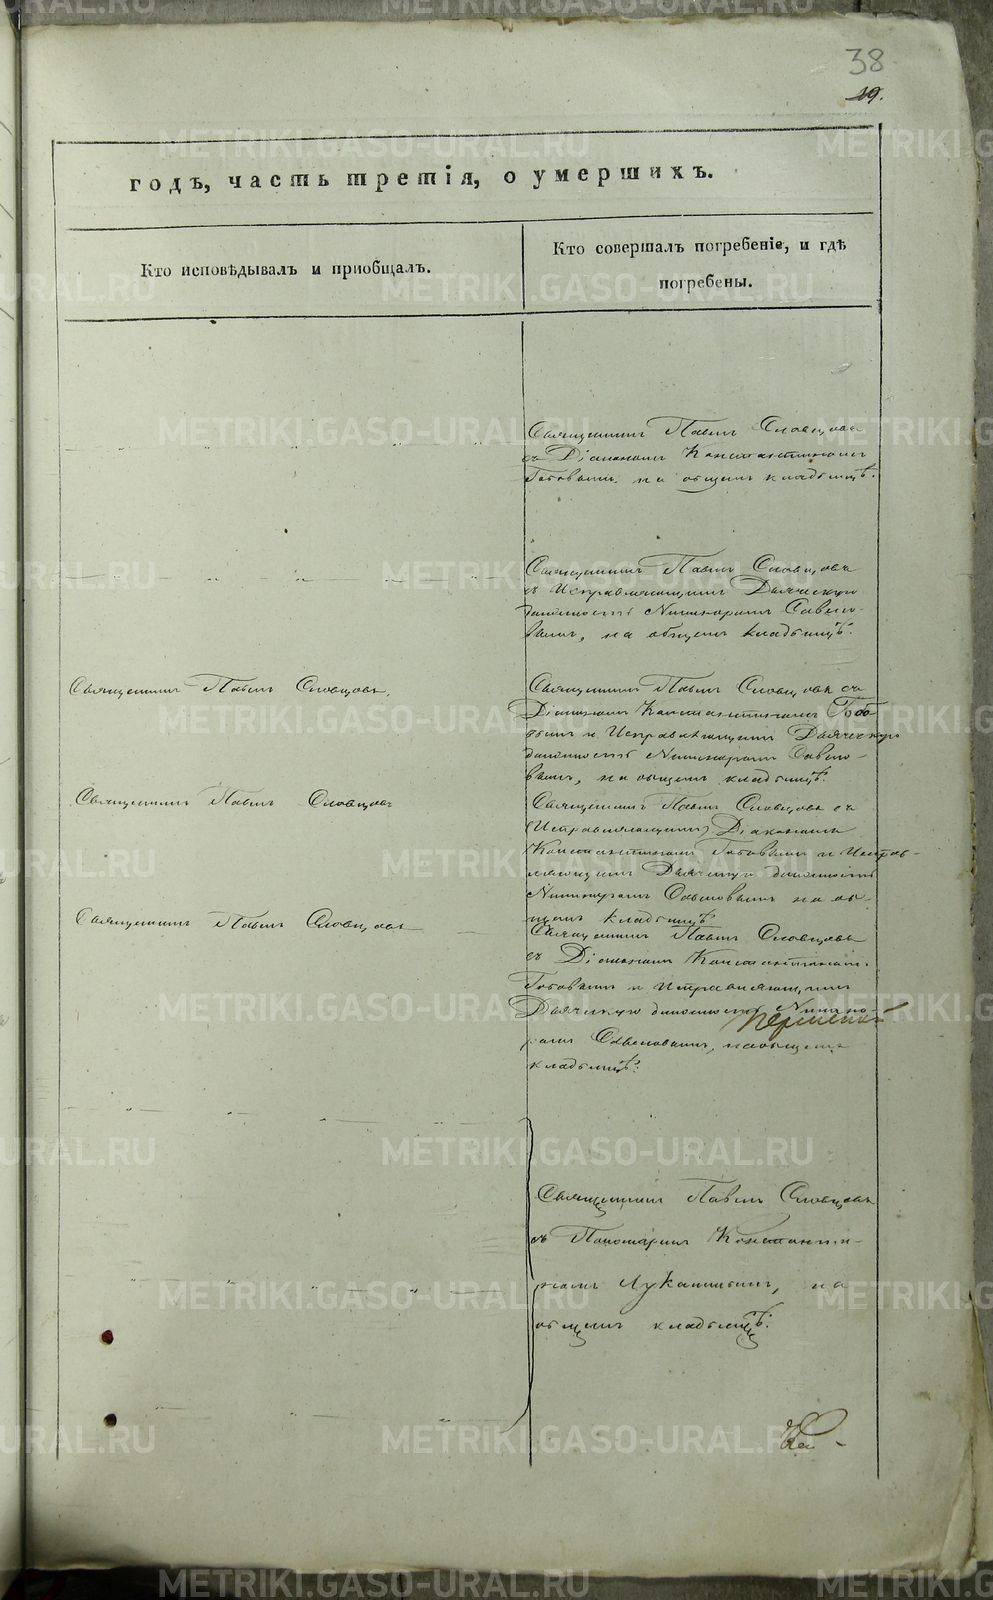 38
19.
годъ, часть третія, о умершихъ.
Кто исповѣдывалъ и пріобщалъ.
Кто совершалъ погребеніе, и гдѣ
погребены.
Священникъ Павелъ Словцовъ
съ Діакономъ Константиномъ
на общемъ кладбищѣ.
Священникъ Павелъ Словцовъ
съ Исправляющимъ Дьяческую
должность Никаноромъ Савело-
вымъ, на общемъ кладбищѣ.
Священникъ Павелъ Словцовъ.
Священникъ Павелъ Словцовъ съ
Діакономъ Константиномъ
и Исправляющимъ Дьяческую
должность Никаноромъ Савело-
вымъ, на общемъ кладбищѣ.
Священникъ Павелъ Словцовъ
Священникъ Павелъ Словцовъ съ
(Исправляющимъ) Діакономъ
Константиномъ и Исправ-
ляющимъ Дьяческую должность
Никаноромъ Савеловымъ на об-
щемъ кладбищѣ
Священникъ Павелъ Словцовъ
Священникъ Павелъ Словцовъ
съ Діакономъ Константиномъ
и Исправляющимъ
Дьяческую должность Никано-
ромъ Савеловымъ, на общемъ
кладбищѣ.
Священникъ Павелъ Словцовъ
съ Пономаремъ Константи-
номъ Луканинымъ, на
общемъ кладбищѣ.
METRIKI.GASO-URAL.RU